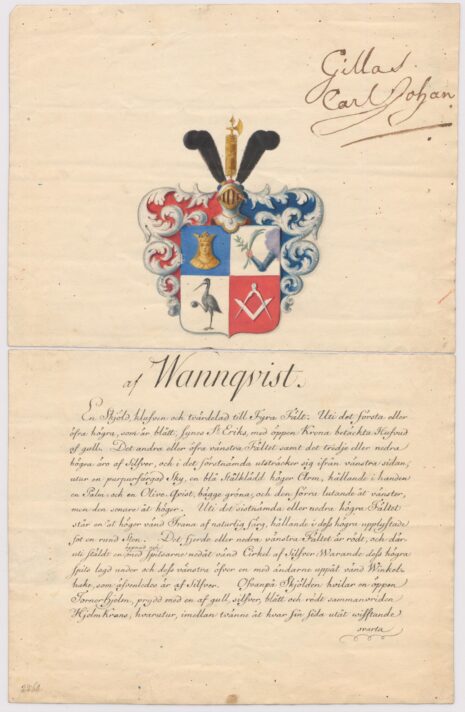 Gillas.
Carl Johan
af Wannqvist.
En Sköld, klufven och tvärdelad till Fyra Fält. Uti det första eller
öfra högra, som är blått, synes St Eriks, med öppen Krona betäckta Hufvud
af guld. Det andra eller öfra vänstra Fältet samt det tredje eller nedra
högra äro af Silfver, och i det förstnämda utsträcker sig ifrån vänstra sidan,
utur en purpurfärgad Sky, en blå klädd höger Arm, hållande i handen
en Palm- och en Olive-Qvist, bägge gröna, och den förra lutande åt vänster,
men den senare åt höger. Uti det sistnämda eller nedra högra Fältet
står en åt höger vänd Trana af naturlig färg, hållande i dess högra upplyftade
fot en rund Sten. Det fjerde eller nedra vänstra Fältet är rödt, och där-
uti stäldt en med Spitsarne nedåt vänd Cirkel af Silfver; Warande dess högra
spits lagd under och dess vänstra öfver en med ändarne uppåt vänd Winkel-
hake, som äfvenledes är af Silfver. Ofvanpå Skjölden hvilar en öppen
Tornerhjelm, prydd med en af guld, silfver, blått och rödt sammanvriden
Hjelm Krans, hvarutur, imellan tvänne åt hvar sin sida utåt wifftande
svarta